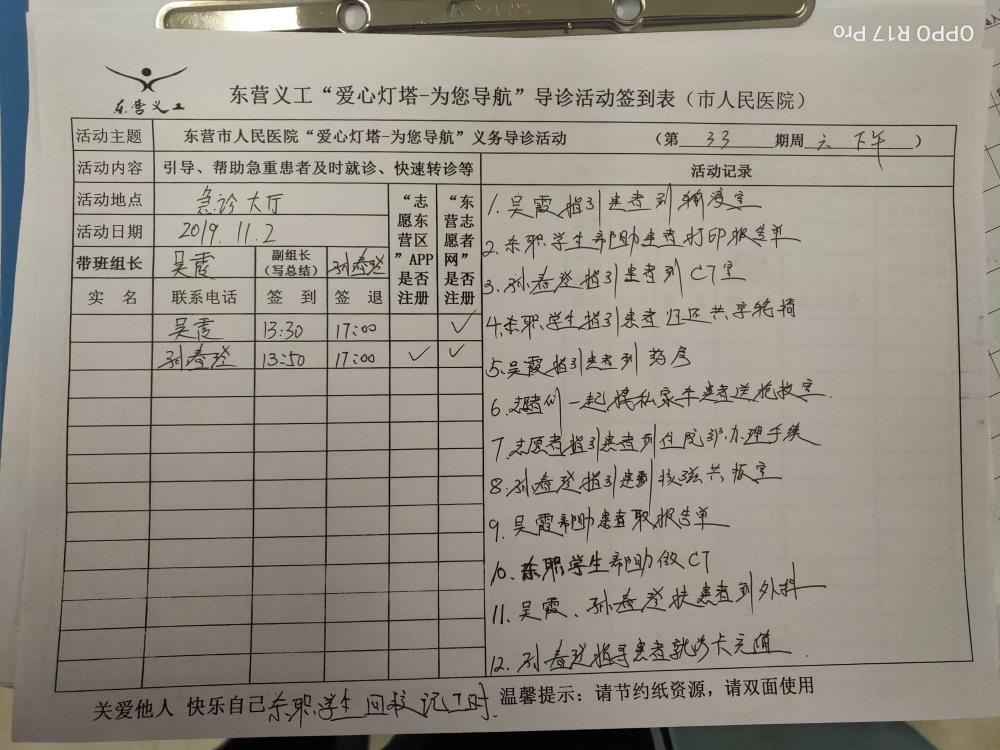 OPPO R17 Pro
东营义工
东营义工“爱心灯塔-为您导航”导诊活动签到表（市人民医院）
活动主题 东营市人民医院“爱心灯塔-为您导航”义务导诊活动 （第 33 期周 六 下午 ）
活动内容 引导、帮助急重患者及时就诊、快速转诊等
活动地点 急诊大厅
活动日期 2019.11.2
带班组长 吴霞 副组长（写总结） 孙春
“志愿东营区”APP是否注册
“东营志愿者网”是否注册
实 名 联系电话 签 到 签 退
吴霞 13:30 17:00 ✓
孙春 13:50 17:00 ✓ ✓
活动记录
1. 吴霞指引患者到输液室
2. 东职学生帮助患者打印报告单
3. 孙春 指引患者到CT室
4. 东职学生指引患者归还共享轮椅
5. 吴霞指引患者到药房
6. 志愿者们一起将私家车患者送抢救室.
7. 志愿者指引患者到住院部办理手续
8. 孙春 指引患者到核磁共振室
9. 吴霞帮助患者取报告单
10. 东职学生帮助做CT
11. 吴霞、孙春 扶患者到外科
12. 孙春 指导患者就诊卡充值.
关爱他人 快乐自己 东职学生回校记工时. 温馨提示：请节约纸资源，请双面使用